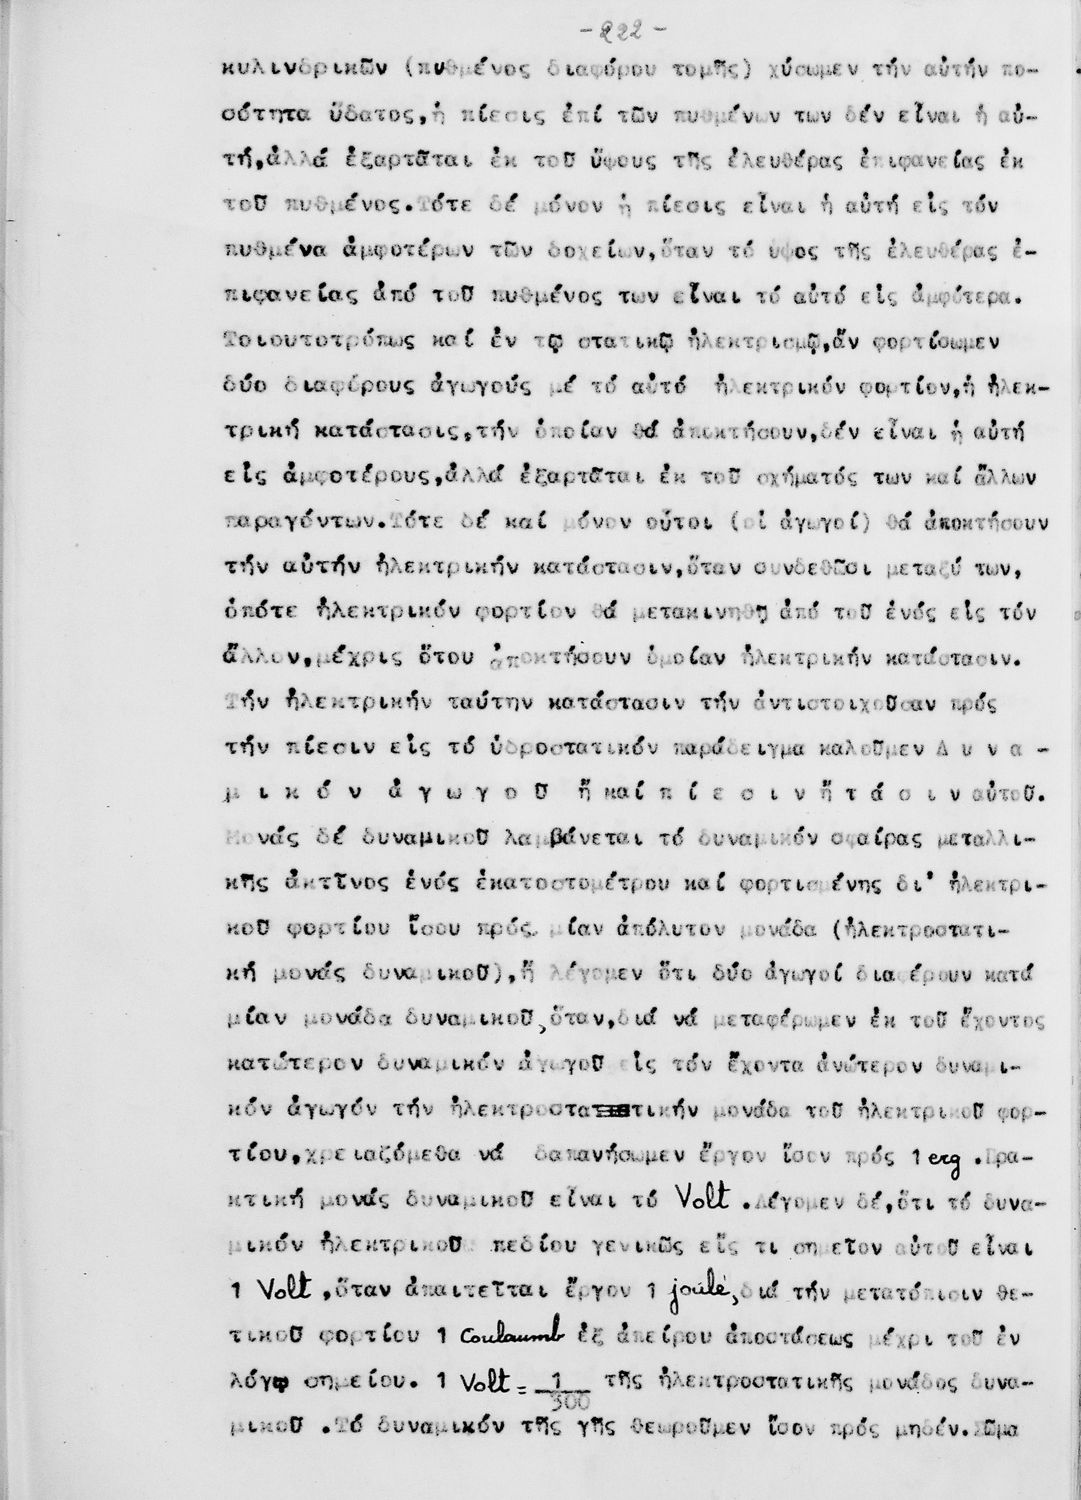 -222-
κυλινδρικῶν (πυθμένος διαφόρου τομῆς) χύσωμεν τήν αὐτήν πο-
σότητα ὕδατος,ἡ πίεσις ἐπί τῶν πυθμένων των δέν εἶναι ἡ αὐ-
τή,ἀλλά ἐξαρτᾶται ἐκ τοῦ ὕψους τῆς ἐλευθέρας ἐπιφανείας ἐκ
τοῦ πυθμένος.Τότε δέ μόνον ἡ πίεσις εἶναι ἡ αὐτή εἰς τόν
πυθμένα ἀμφοτέρων τῶν δοχείων,ὅταν τό ὕψος τῆς ἐλευθέρας ἐ-
πιφανείας ἀπό τοῦ πυθμένος των εἶναι τό αὐτό εἰς ἀμφότερα.
Τοιουτοτρόπως καί ἐν τῳ στατικῳ ἠλεκτρισμῳ,ἄν φορτίσωμεν
δύο διαφόρους ἀγωγούς μέ τό αὐτό ἠλεκτρικόν φορτίον,ἡ ἠλεκ-
τρική κατάστασις,τήν ὁποίαν θά ἀποκτήσουν,δέν εἶναι ἡ αὐτή
εἰς ἀμφοτέρους,ἀλλά ἐξαρτᾶται ἐκ τοῦ σχήματός των καί ἄλλων
παραγόντων.Τότε δέ καί μόνον οὗτοι (οἱ ἀγωγοί) θά ἀποκτήσουν
τήν αὐτήν ἠλεκτρικήν κατάστασιν,ὅταν συνδεθῶσι μεταξύ των,
ὁπότε ἠλεκτρικόν φορτίον θά μετακινηθῃ ἀπό τοῦ ἑνός εἰς τόν
ἄλλον,μέχρις ὅτου ἀποκτήσουν ὁμοίαν ἠλεκτρικήν κατάστασιν.
Τήν ἠλεκτρικήν ταύτην κατάστασιν τήν ἀντιστοιχοῦσαν πρός
τήν πίεσιν εἰς τό ὑδροστατικόν παράδειγμα καλοῦμεν Δ υ ν α -
μ ι κ ό ν ἀ γ ω γ ο ῦ ἤ καί π ί ε σ ι ν ἤ τ ά σ ι ν αὐτοῦ.
Μονάς δέ δυναμικοῦ λαμβάνεται τό δυναμικόν σφαίρας μεταλλι-
κῆς ἀκτῖνος ἑνός ἑκατοστομέτρου καί φορτισμένης δι' ἠλεκτρι-
κοῦ φορτίου ἴσου πρός μίαν ἀπόλυτον μονάδα (ἠλεκτροστατι-
κή μονάς δυναμικοῦ),ἤ λέγομεν ὅτι δύο ἀγωγοί διαφέρουν κατά
μίαν μονάδα δυναμικοῦ,ὅταν,διά νά μεταφέρωμεν ἐκ τοῦ ἔχοντος
κατώτερον δυναμικόν ἀγωγοῦ εἰς τόν ἔχοντα ἀνώτερον δυναμι-
κόν ἀγωγόν τήν ἠλεκτροστατικήν μονάδα τοῦ ἠλεκτρικοῦ φορ-
τίου,χρειαζόμεθα νά δαπανήσωμεν ἔργον ἴσον πρός 1 erg .Πρα-
κτική μονάς δυναμικοῦ εἶναι τό Volt .Λέγομεν δέ,ὅτι τό δυνα-
μικόν ἠλεκτρικοῦ πεδίου γενικῶς εἴς τι σημεῖον αὐτοῦ εἶναι
1 Volt ,ὅταν ἀπαιτεῖται ἔργον 1 joule,διά τήν μετατόπισιν θε-
τικοῦ φορτίου 1 Coulaumb ἐξ ἀπείρου ἀποστάσεως μέχρι τοῦ ἐν
λόγῳ σημείου. 1 Volt = 1/300 τῆς ἠλεκτροστατικῆς μονάδος δυνα-
μικοῦ .Τό δυναμικόν τῆς γῆς θεωροῦμεν ἴσον πρός μηδέν.Σῶμα